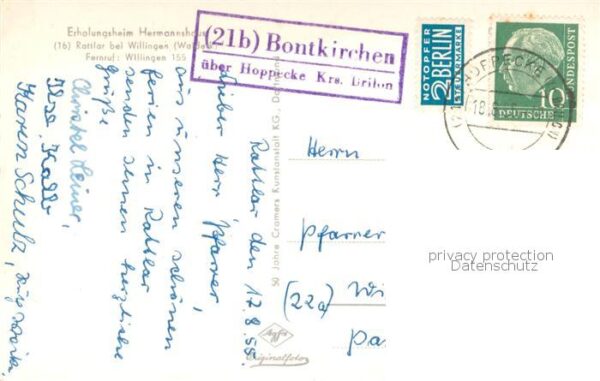 Erholungsheim Hermannshaus
(16) Rattlar bei Willingen (Waldeck)
Fernruf: Willingen 155
(21b) Bontkirchen
über Hoppecke Krs. Brilon
NOTOPFER
2 BERLIN
STEUERMARKE
DEUTSCHE
BUNDESPOST
10
HOPPECKE
18.8.
Rattlar den 17.8.55.
Lieber Herr Pfarrer,
aus unseren schönen
Ferien in Rattlar
senden Ihnen herzliche
Grüße
Christel Leiner,
Ilse Kalb
Karen Schulz,
50 Jahre Cramers Kunstanstalt KG., Dortmund
Agfa
Originalfoto
Herrn
Pfarrer
Wi
(22a)
Pa
privacy protection
Datenschutz